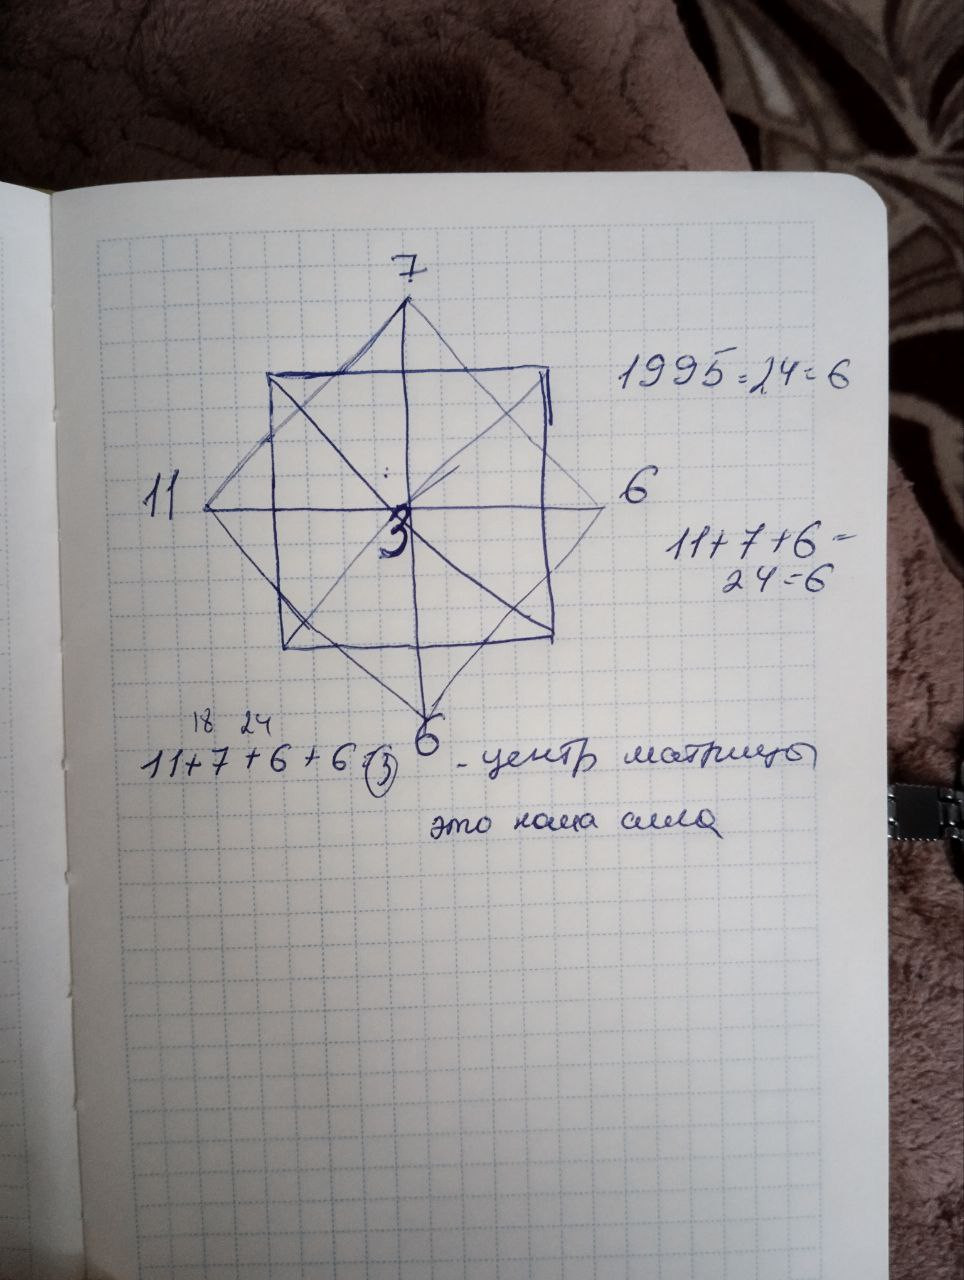 7
1995=24=6
11
6
3
11+7+6=
24=6
18 24
6
11+7+6+6=3 - центр матрицы
это наша сила